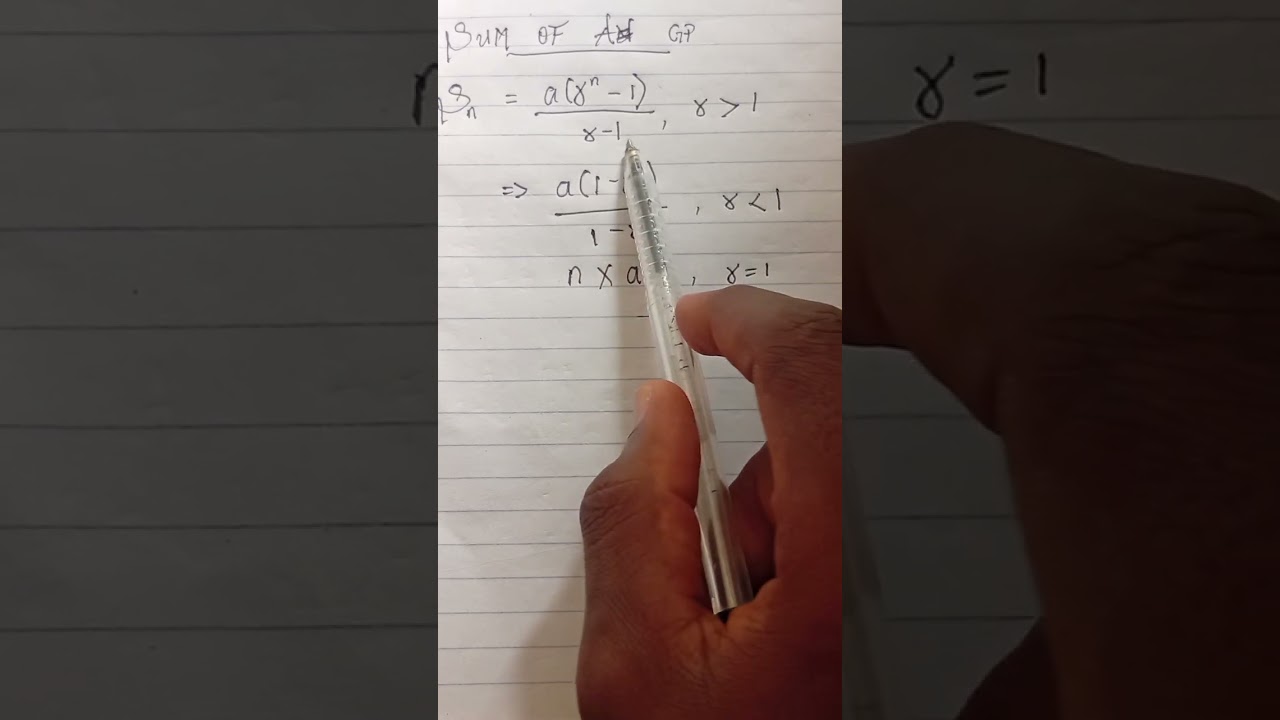 SUM OF A GP
Sn = a(r^n - 1) / r-1 , r > 1
=> a(1 - ) / 1 - , r < 1
n x a , r = 1
r = 1